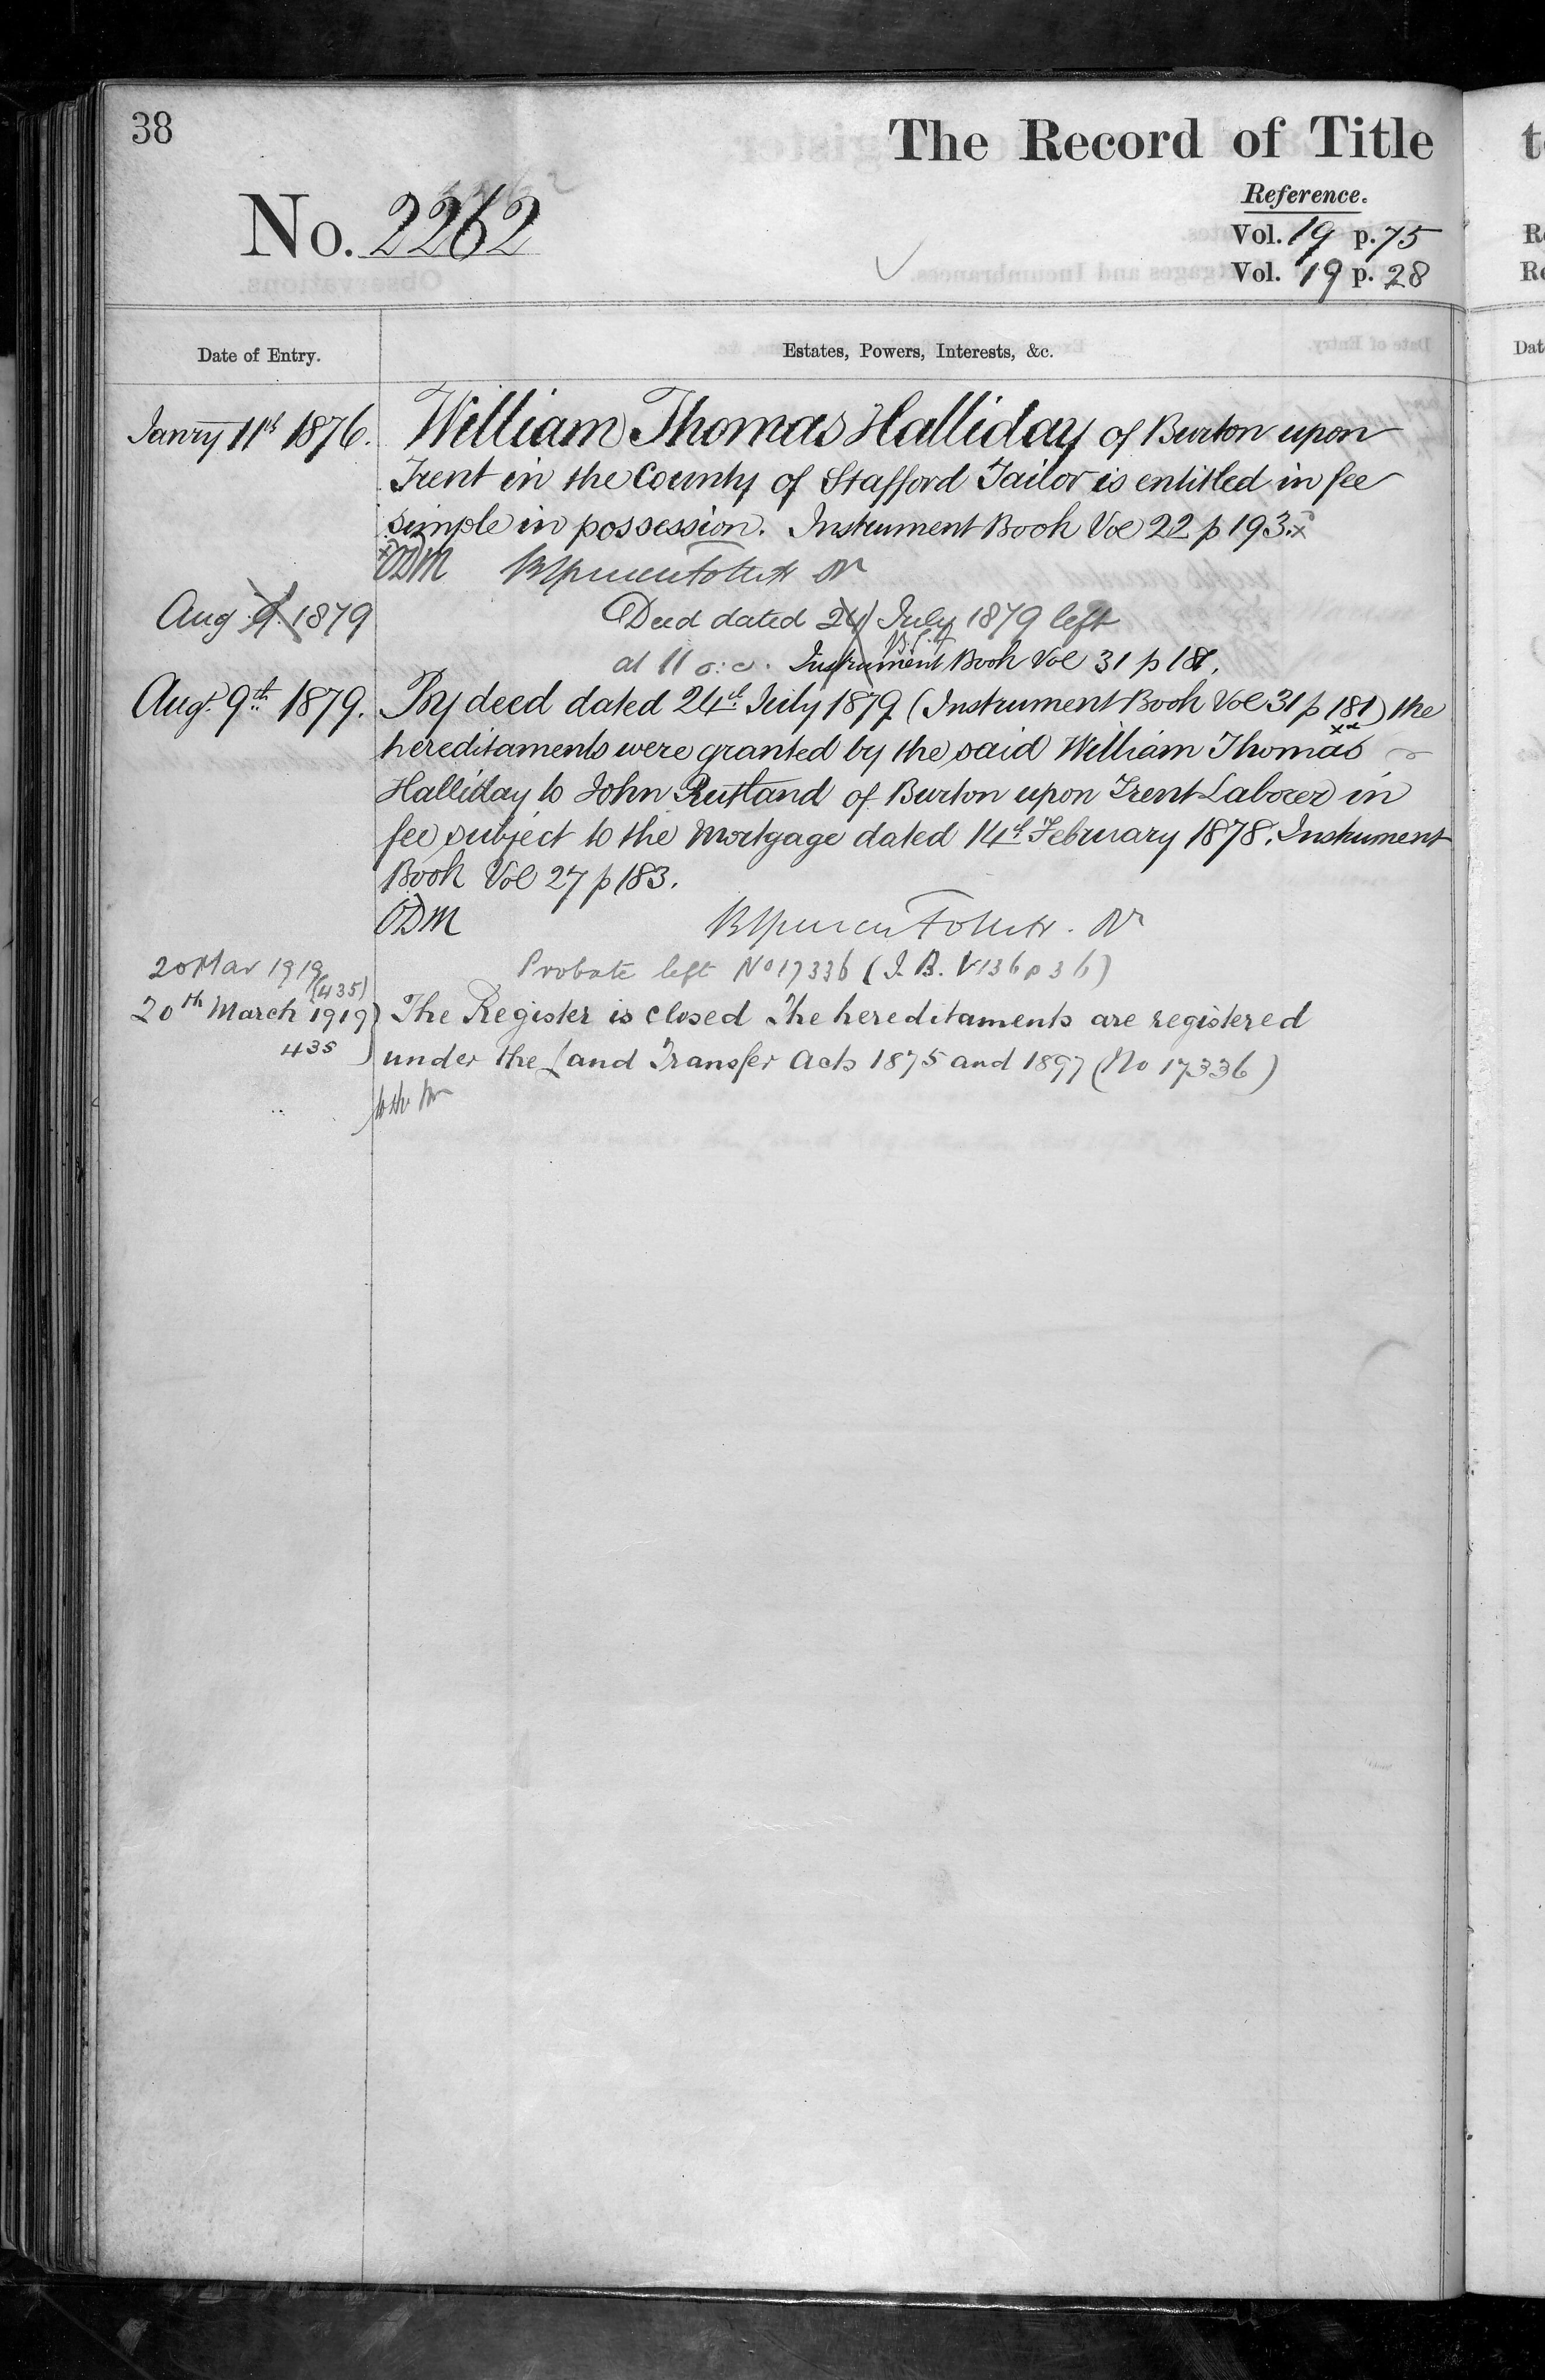 38
The Record of Title
Reference.
No. 2262
Vol. 19 p. 75
Vol. 19 p. 28
Date of Entry.
Estates, Powers, Interests, &c.
Janry 11th 1876.
William Thomas Halliday of Burton upon
Trent in the County of Stafford Tailor is entitled in fee
simple in possession. Instrument Book Vol 22 p 193.x
xODM
Aug 9 1879
Deed dated 24 July 1879 left
at 11 o:c. Instrument Book Vol 31 p 181.
Augt. 9th 1879.
By deed dated 24th July 1879 (Instrument Book Vol 31 p 181) the
hereditaments were granted by the said William Thomas
Halliday to John Rutland of Burton upon Trent Laborer in
fee subject to the Mortgage dated 14th February 1878. Instrument
Book Vol 27 p 183.
ODM
20 Mar 1919
(435)
Probate left No 17336 (I.B. V136 p 36)
20th March 1919)
435
The Register is closed The hereditaments are registered
under the Land Transfer Acts 1875 and 1897 (No 17336)
t
R
Re
Dat